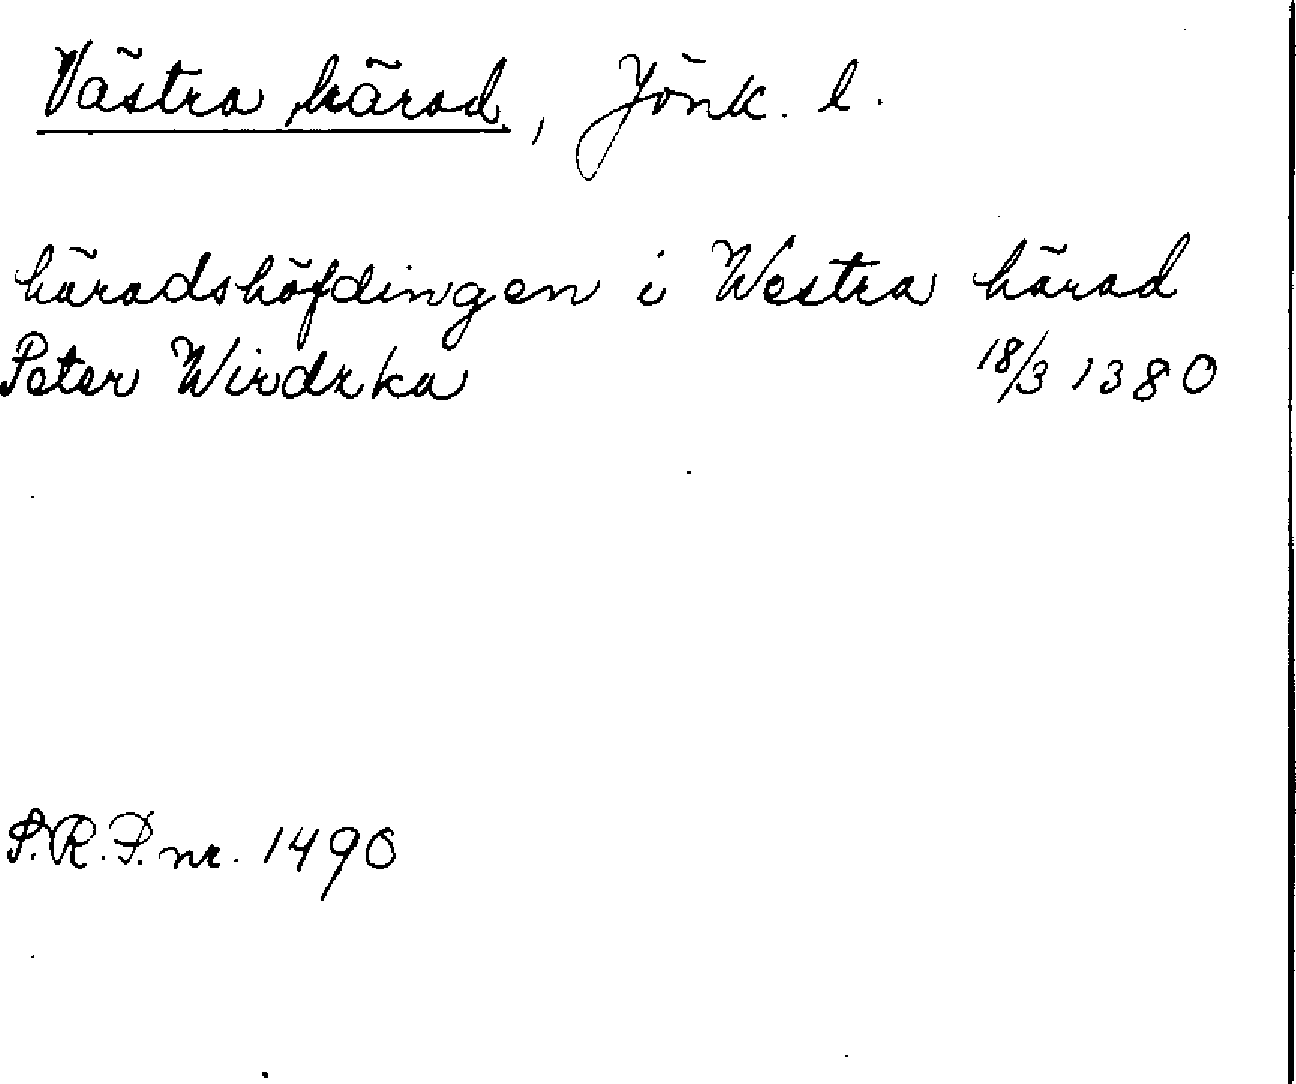 Västra härad, Jönk. l.
häradshöfdingen i Westra härad
Peter Wirdzka 18/3 1380
S.R.P. nr. 1490